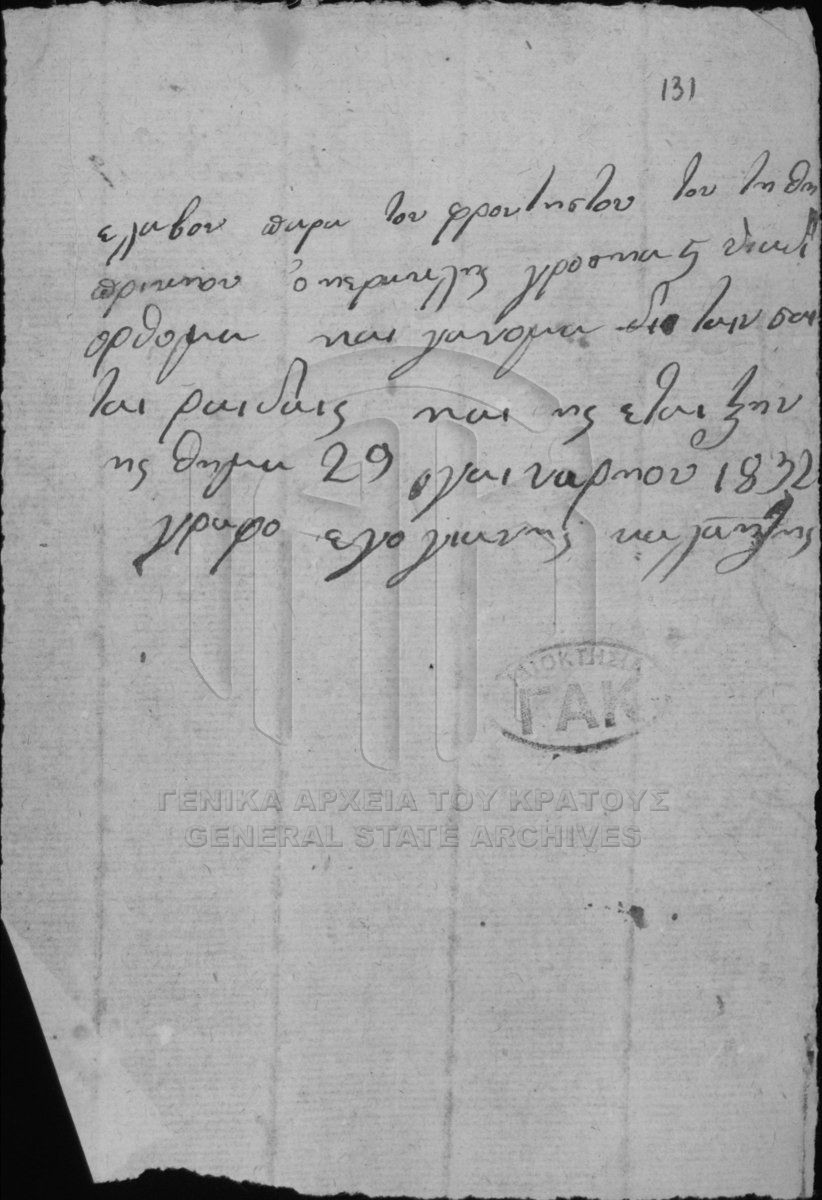 131
ελαβον παρα του φροντηστου του τηθη
πρικηου ο κερατλης γροσηα 5 δια δι
ορθομα και γανομα δι
ται ραιδαις και ης εται ξην
ης θημα 29 γαιναρηου 1832
γραφο εγο γιανης
ΙΔΙΟΚΤΗΣΙΑ
ΓΑΚ
ΓΕΝΙΚΑ ΑΡΧΕΙΑ ΤΟΥ ΚΡΑΤΟΥΣ
GENERAL STATE ARCHIVES